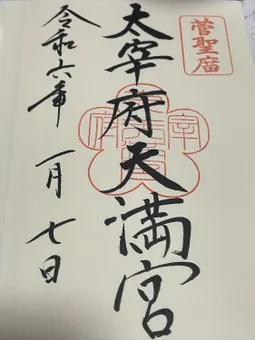 菅聖庿
太宰府天満宮
令和六年一月七日